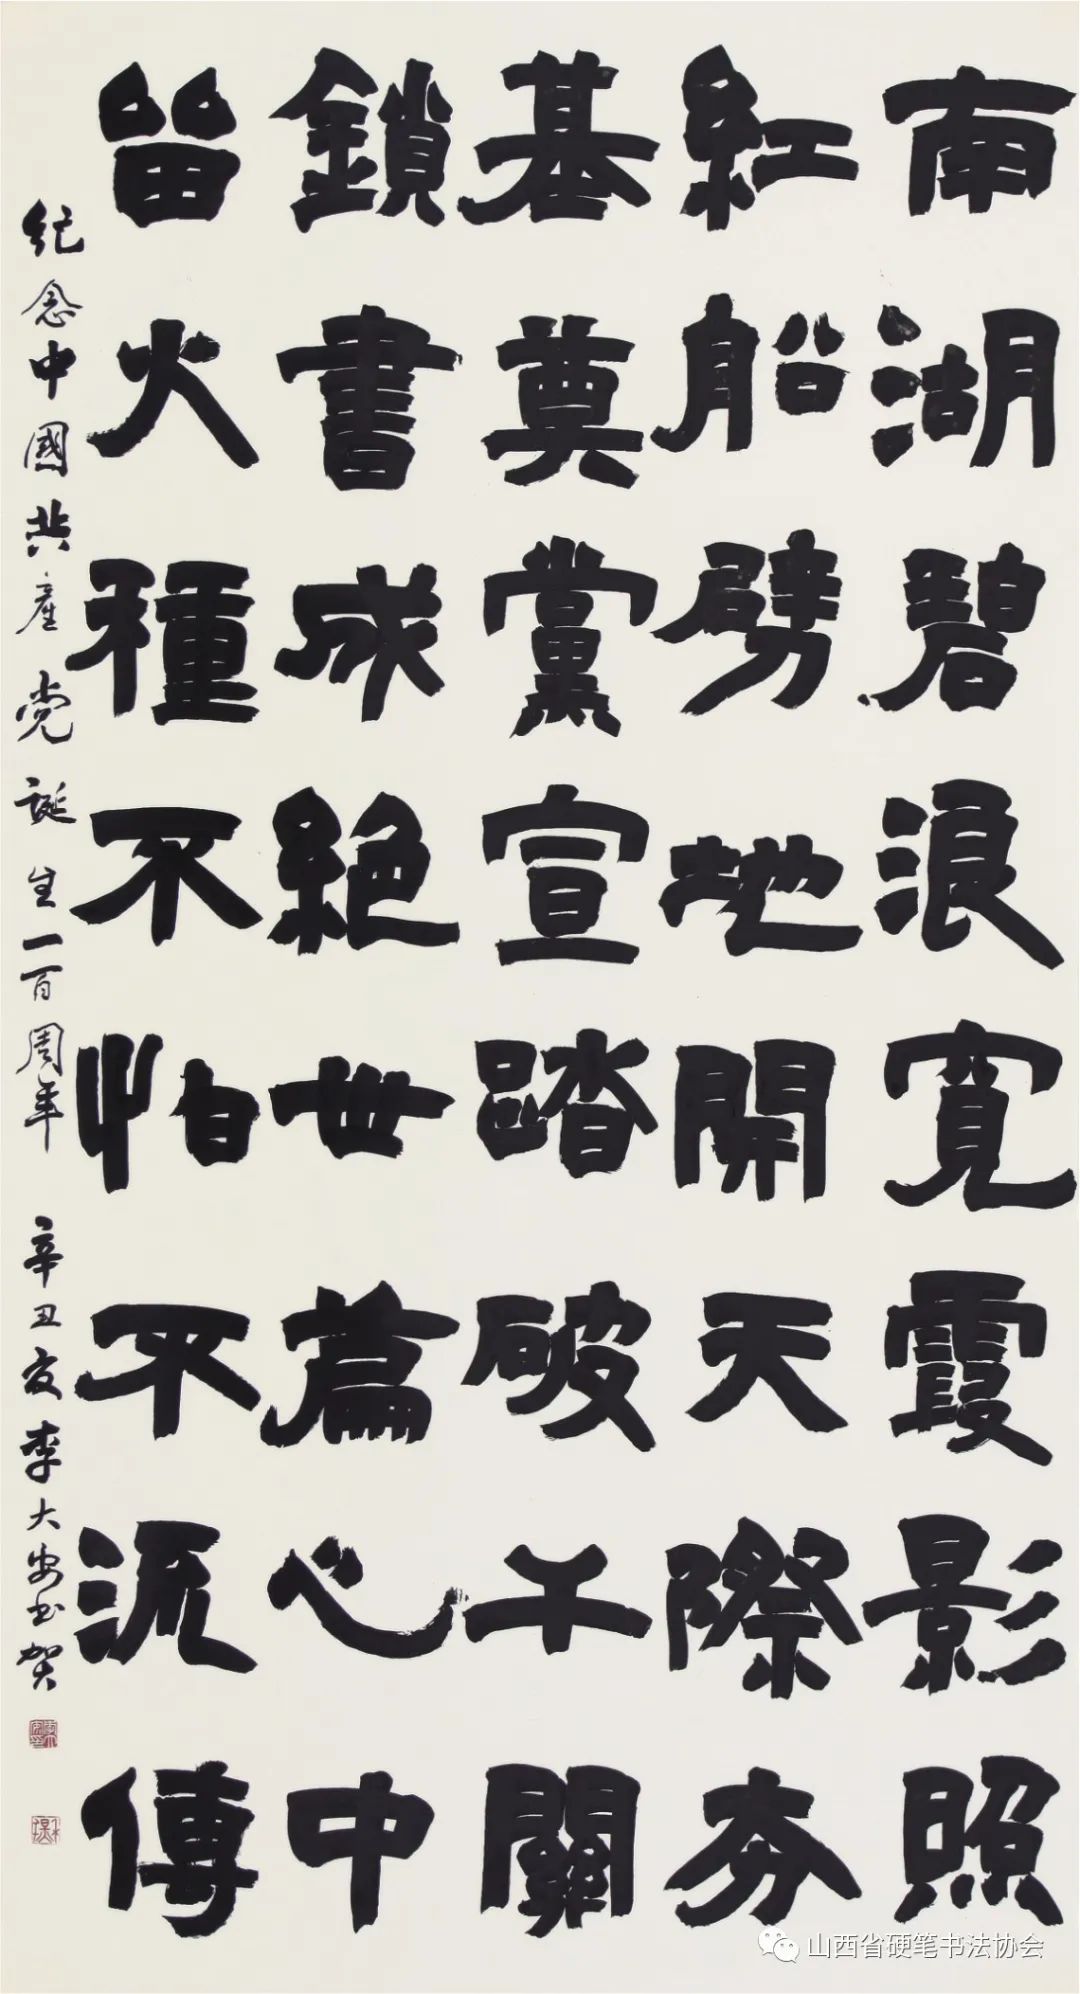 南湖碧浪寬霞影照
紅船劈地開天際夯
基奠黨宣踏破千關
鎖書成絕世篇心中
留火種不怕不流傳
纪念中國共產党誕生一百周年 辛丑夏李大安书贺
山西省硬笔书法协会